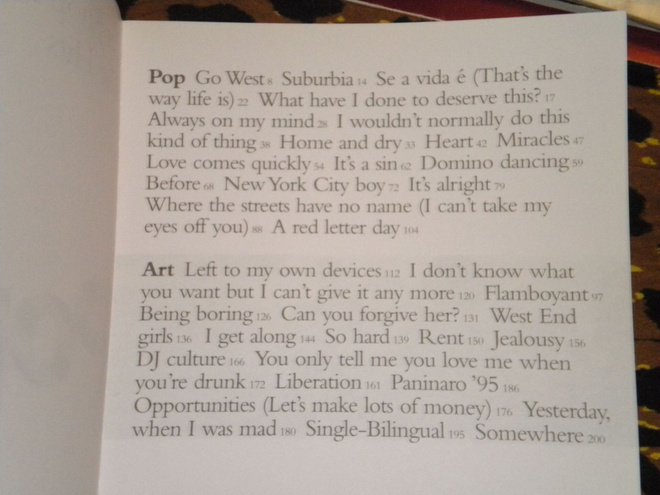 Pop Go West 8 Suburbia 14 Se a vida é (That's the
way life is) 22 What have I done to deserve this? 17
Always on my mind 28 I wouldn't normally do this
kind of thing 38 Home and dry 33 Heart 42 Miracles 47
Love comes quickly 54 It's a sin 62 Domino dancing 59
Before 68 New York City boy 72 It's alright 79
Where the streets have no name (I can't take my
eyes off you) 88 A red letter day 104
Art Left to my own devices 112 I don't know what
you want but I can't give it any more 120 Flamboyant 97
Being boring 126 Can you forgive her? 131 West End
girls 136 I get along 144 So hard 139 Rent 150 Jealousy 156
DJ culture 166 You only tell me you love me when
you're drunk 172 Liberation 161 Paninaro '95 186
Opportunities (Let's make lots of money) 176 Yesterday,
when I was mad 180 Single-Bilingual 195 Somewhere 200